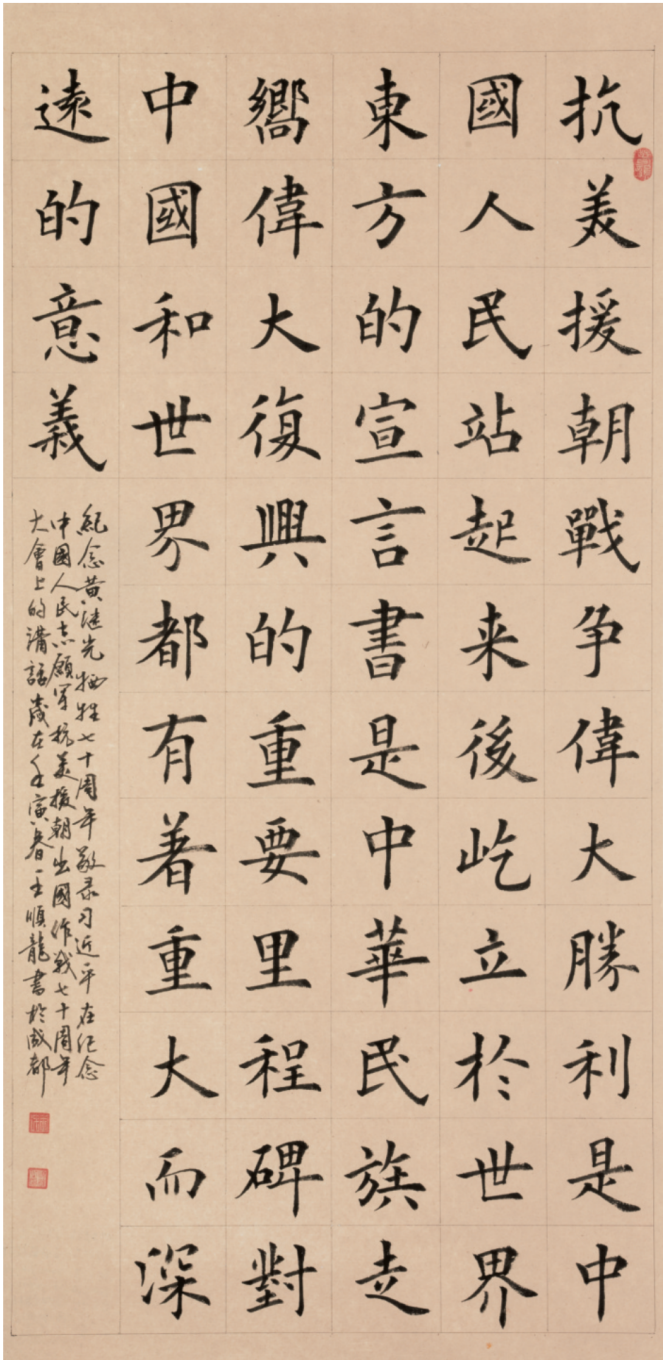 抗美援朝戰争偉大勝利是中
國人民站起来後屹立於世界
東方的宣言書是中華民族走
嚮偉大復興的重要里程碑對
中國和世界都有着重大而深
遠的意義
紀念黄继光牺牲七十周年敬录习近平在纪念
中國人民志願军抗美援朝出國作戰七十周年
大會上的講話歲在壬寅春王順龍書於成都